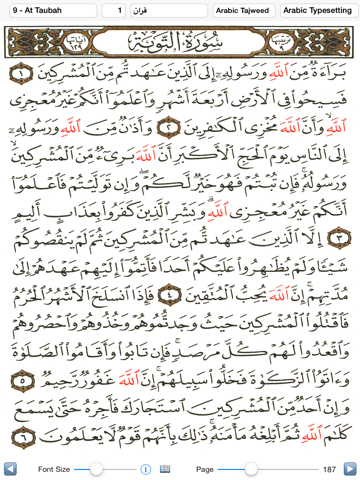 9 - At Taubah 1 قرآن Arabic Tajweed Arabic Typesetting
سُورَةُ التَّوْبَةِ
بَرَآءَةٌ مِّنَ ٱللَّهِ وَرَسُولِهِۦٓ إِلَى ٱلَّذِينَ عَٰهَدتُّم مِّنَ ٱلْمُشْرِكِينَ ١
فَسِيحُوا۟ فِى ٱلْأَرْضِ أَرْبَعَةَ أَشْهُرٍ وَٱعْلَمُوٓا۟ أَنَّكُمْ غَيْرُ مُعْجِزِى
ٱللَّهِ وَأَنَّ ٱللَّهَ مُخْزِى ٱلْكَٰفِرِينَ ٢ وَأَذَٰنٌ مِّنَ ٱللَّهِ وَرَسُولِهِۦٓ
إِلَى ٱلنَّاسِ يَوْمَ ٱلْحَجِّ ٱلْأَكْبَرِ أَنَّ ٱللَّهَ بَرِىٓءٌ مِّنَ ٱلْمُشْرِكِينَ
وَرَسُولُهُۥ فَإِن تُبْتُمْ فَهُوَ خَيْرٌ لَّكُمْ وَإِن تَوَلَّيْتُمْ فَٱعْلَمُوٓا۟
أَنَّكُمْ غَيْرُ مُعْجِزِى ٱللَّهِ وَبَشِّرِ ٱلَّذِينَ كَفَرُوا۟ بِعَذَابٍ أَلِيمٍ
٣ إِلَّا ٱلَّذِينَ عَٰهَدتُّم مِّنَ ٱلْمُشْرِكِينَ ثُمَّ لَمْ يَنقُصُوكُمْ
شَيْـًٔا وَلَمْ يُظَٰهِرُوا۟ عَلَيْكُمْ أَحَدًا فَأَتِمُّوٓا۟ إِلَيْهِمْ عَهْدَهُمْ إِلَىٰ
مُدَّتِهِمْ إِنَّ ٱللَّهَ يُحِبُّ ٱلْمُتَّقِينَ ٤ فَإِذَا ٱنسَلَخَ ٱلْأَشْهُرُ ٱلْحُرُمُ
فَٱقْتُلُوا۟ ٱلْمُشْرِكِينَ حَيْثُ وَجَدتُّمُوهُمْ وَخُذُوهُمْ وَٱحْصُرُوهُمْ
وَٱقْعُدُوا۟ لَهُمْ كُلَّ مَرْصَدٍ فَإِن تَابُوا۟ وَأَقَامُوا۟ ٱلصَّلَوٰةَ
وَءَاتَوُا۟ ٱلزَّكَوٰةَ فَخَلُّوا۟ سَبِيلَهُمْ إِنَّ ٱللَّهَ غَفُورٌ رَّحِيمٌ ٥
وَإِنْ أَحَدٌ مِّنَ ٱلْمُشْرِكِينَ ٱسْتَجَارَكَ فَأَجِرْهُ حَتَّىٰ يَسْمَعَ
كَلَٰمَ ٱللَّهِ ثُمَّ أَبْلِغْهُ مَأْمَنَهُۥ ذَٰلِكَ بِأَنَّهُمْ قَوْمٌ لَّا يَعْلَمُونَ ٦
Font Size Page 187